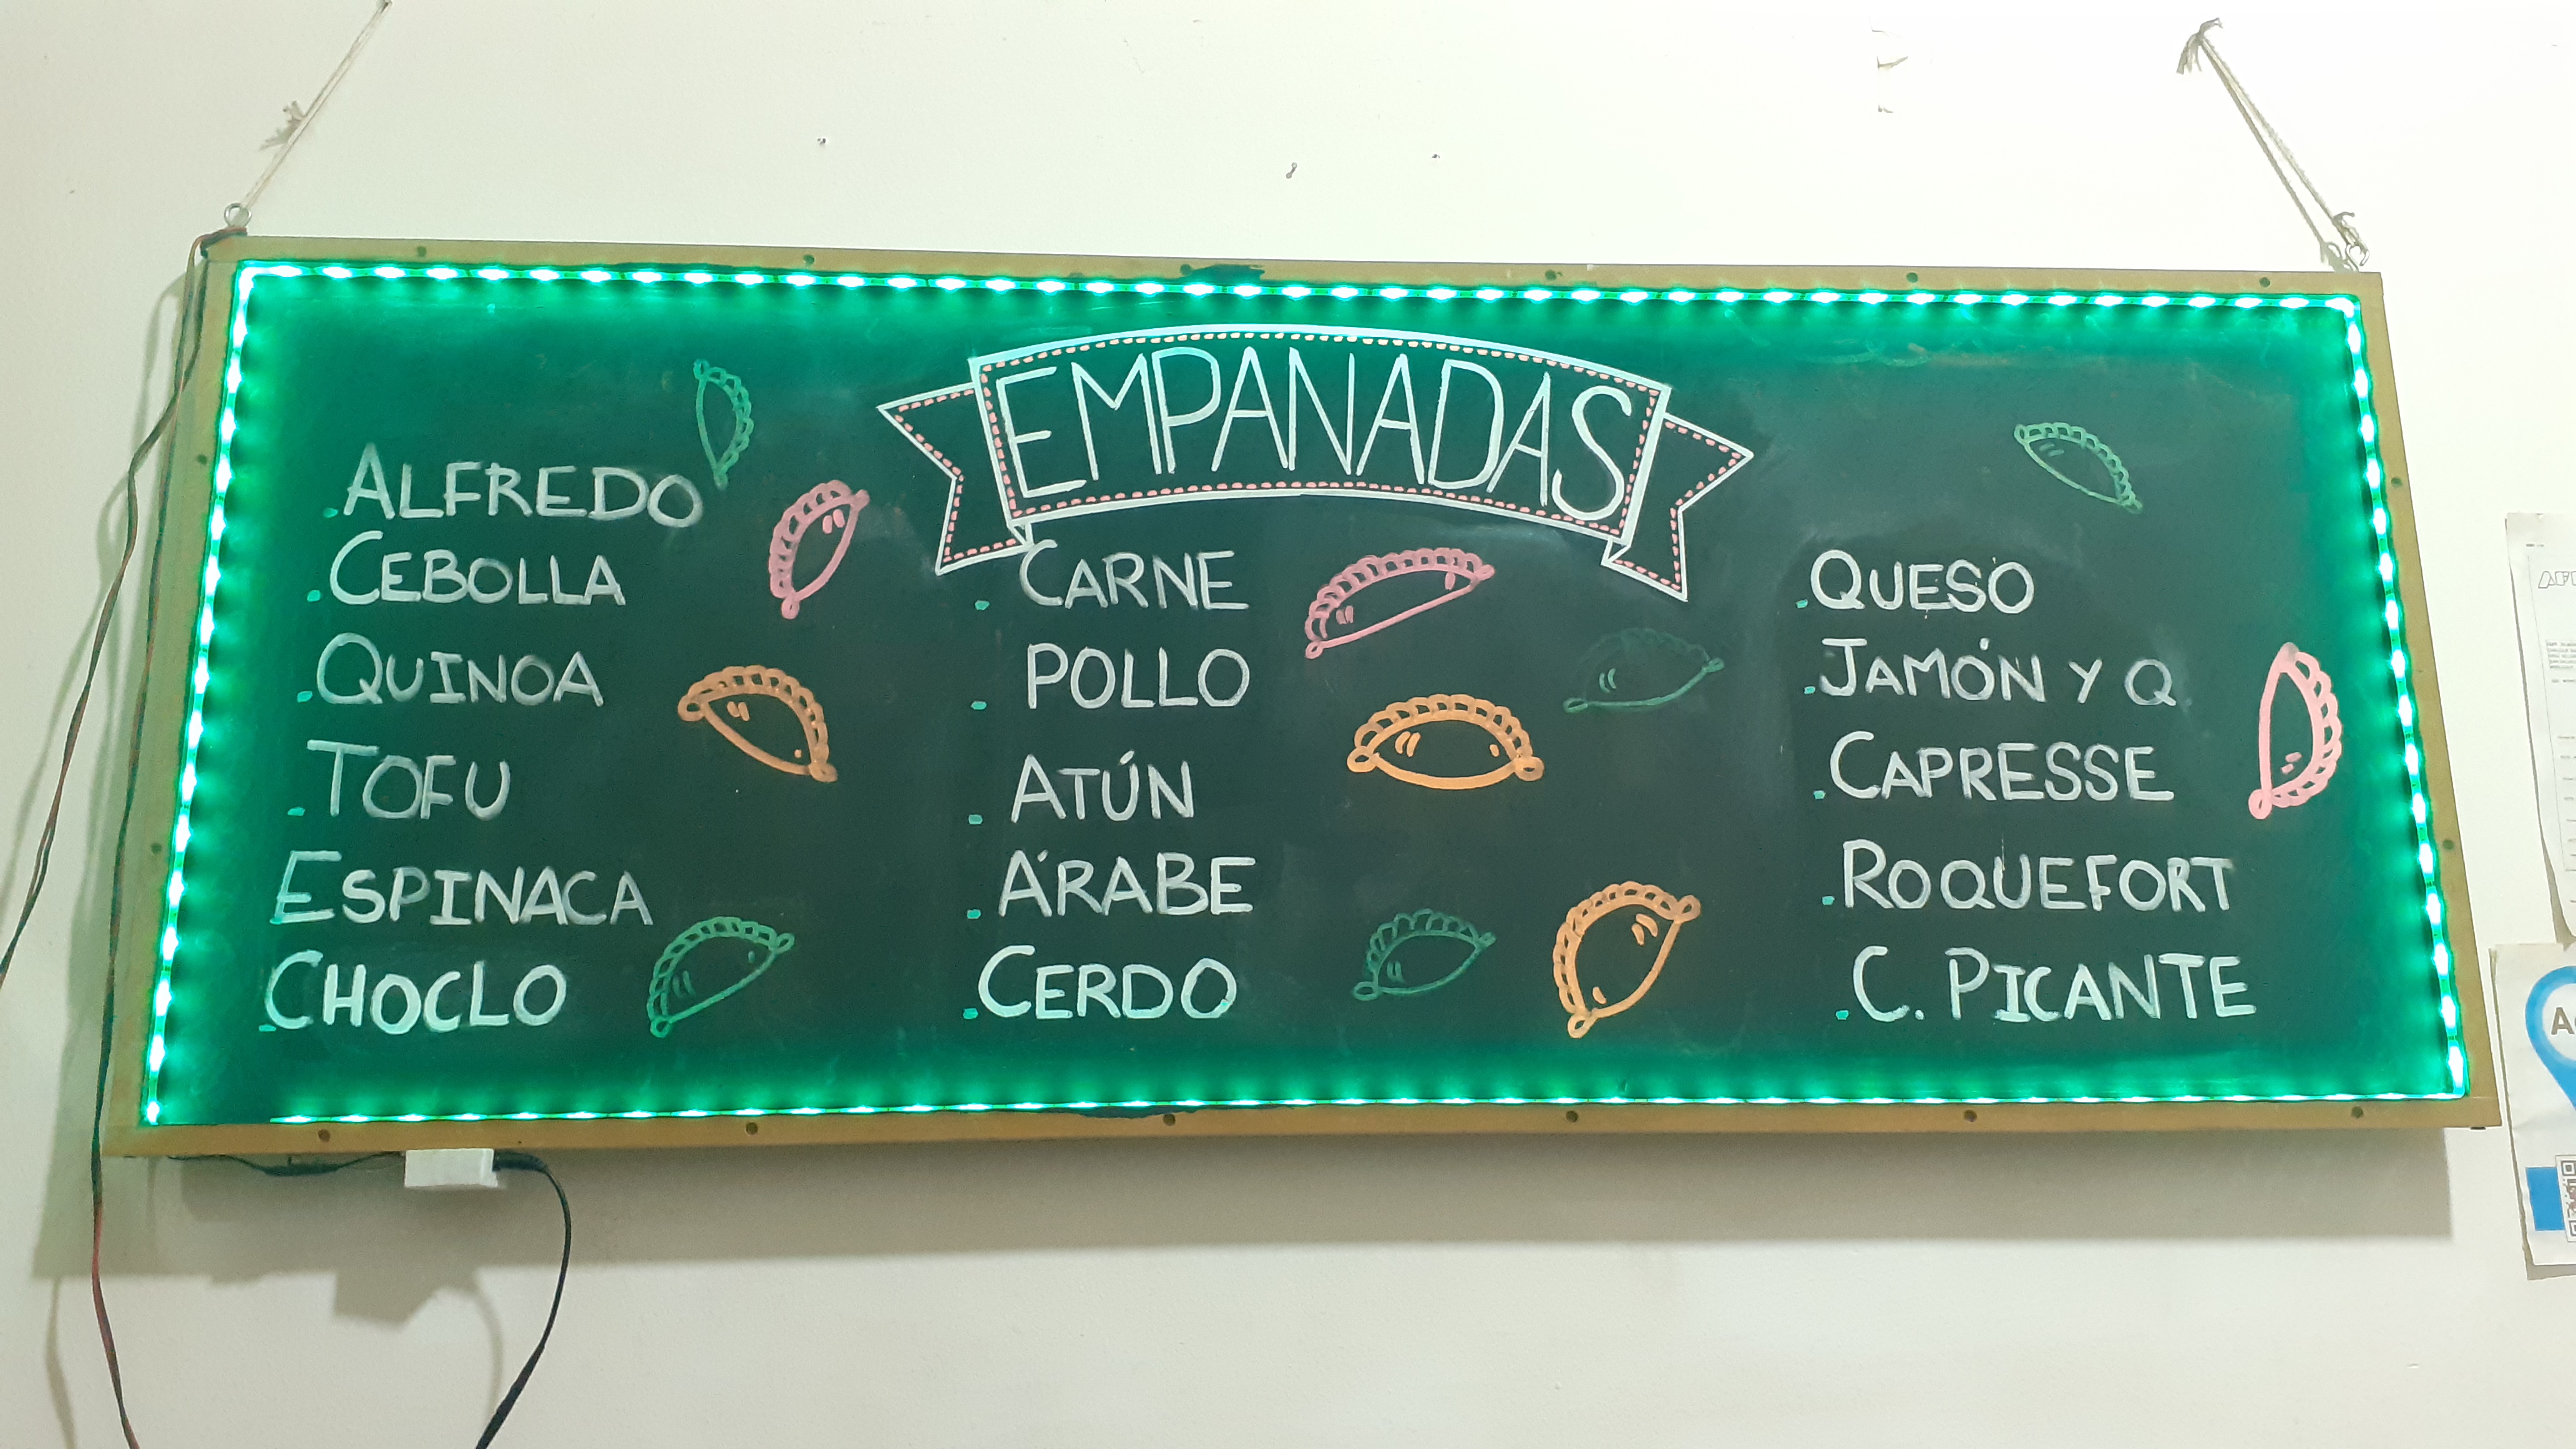 EMPANADAS
.ALFREDO
.CEBOLLA
.QUINOA
.TOFU
ESPINACA
.CHOCLO
.CARNE
.POLLO
.ATÚN
.ÁRABE
.CERDO
.QUESO
.JAMÓN Y Q
.CAPRESSE
.ROQUEFORT
.C. PICANTE